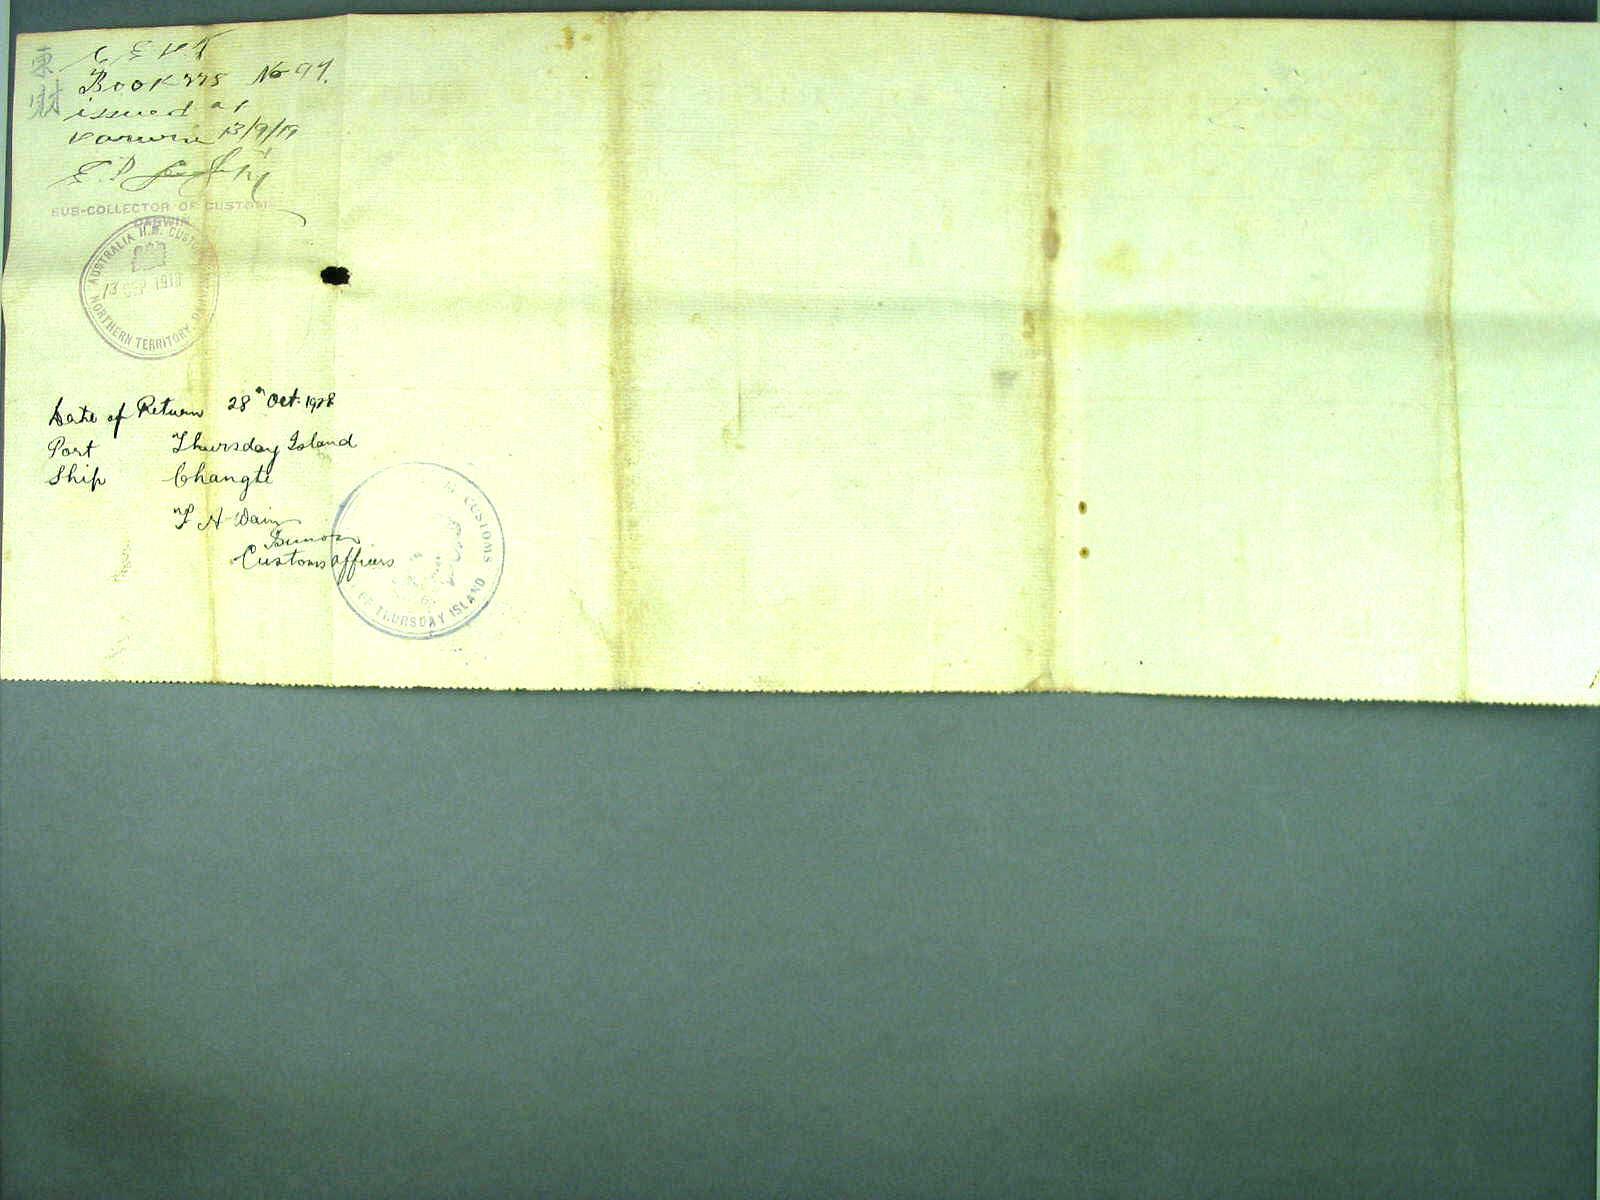 東財
C E D T
Book 225 No 97.
issued at
Darwin 13/9/19
SUB-COLLECTOR OF CUSTOMS
DARWIN
AUSTRALIA H.M. CUSTOMS
13 SEP 1919
NORTHERN TERRITORY
Date of Return 28th Oct. 1928
Port Thursday Island
Ship Changte
Customs Officers
CUSTOMS
OF THURSDAY ISLAND